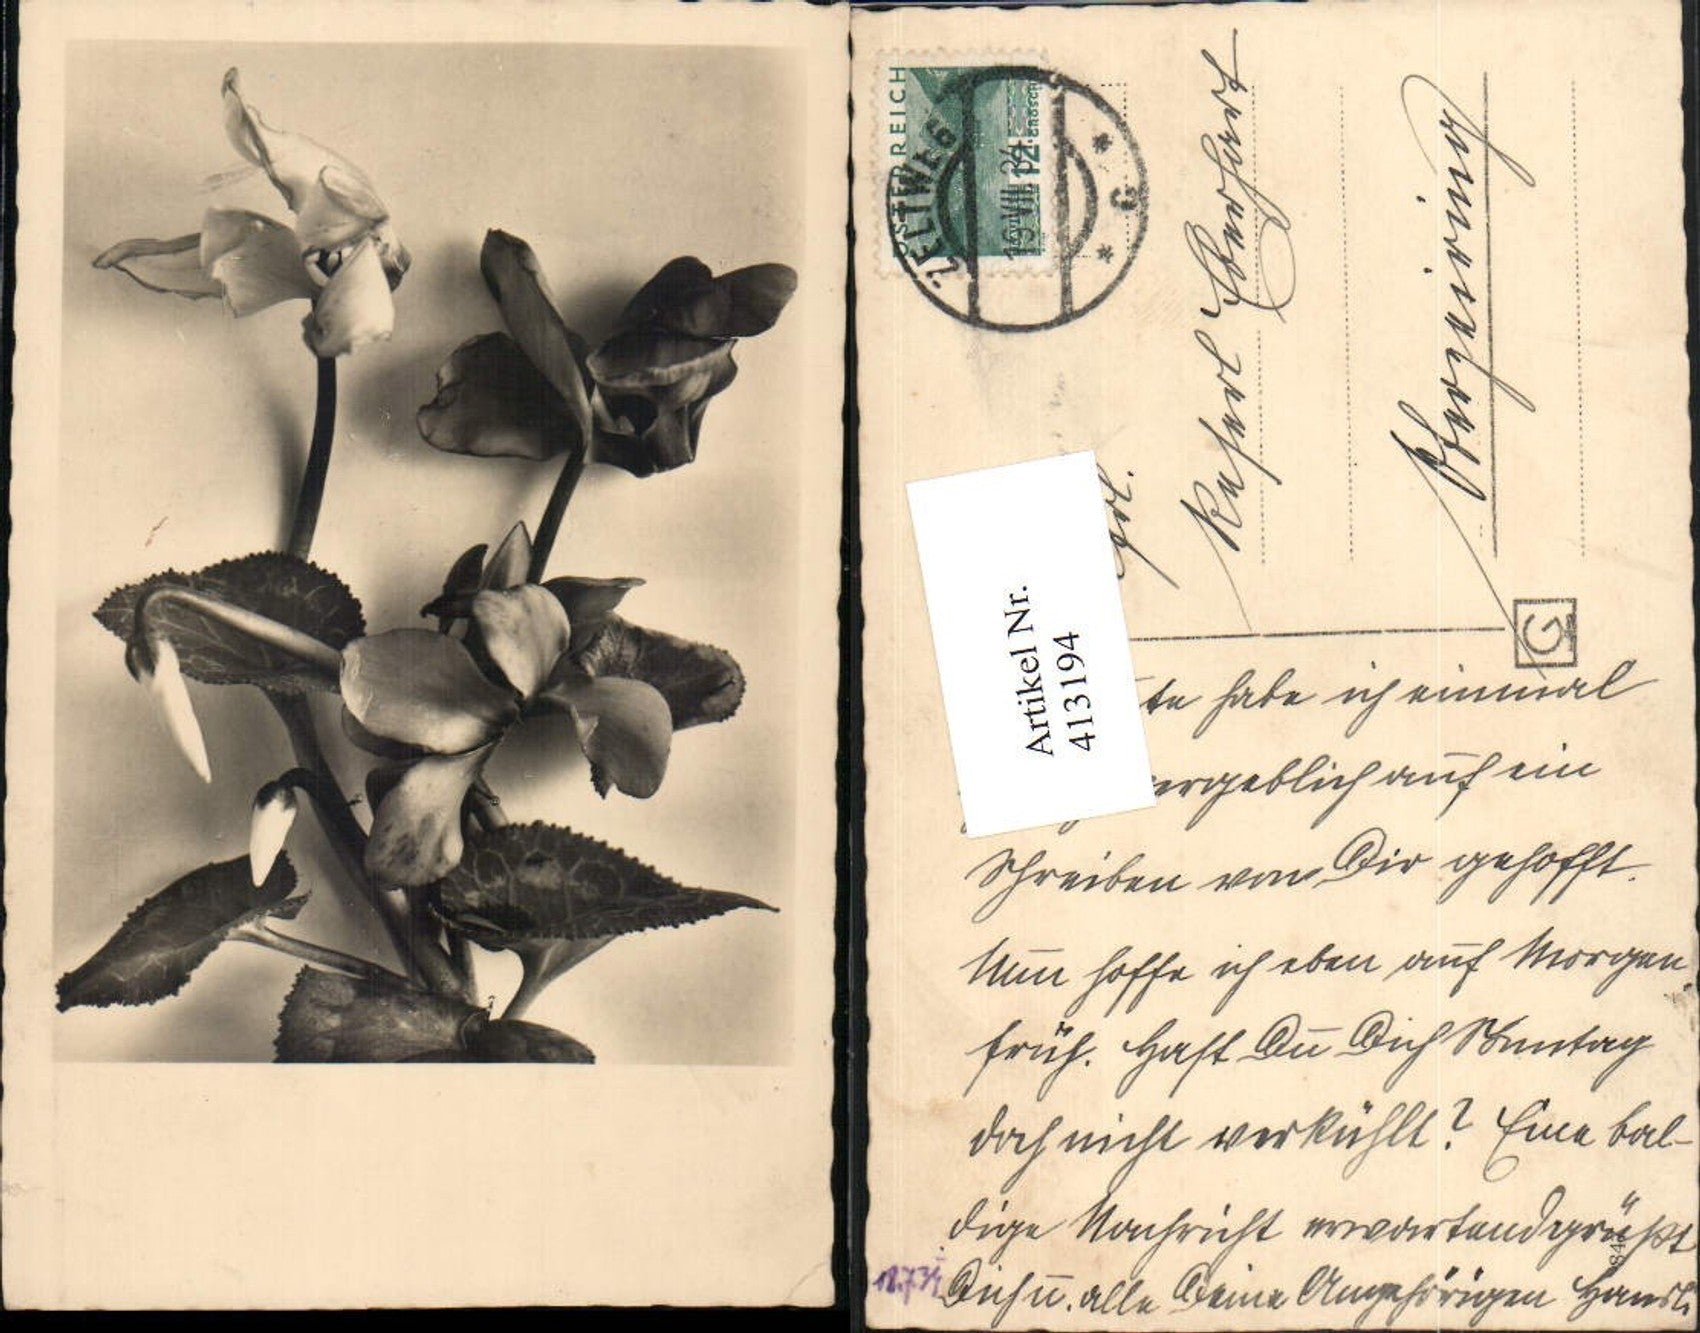 ÖSTERREICH
12 GROSCH
ZELTWEG
19.VII.34
* G *
Frl.
Reserl Eberhart
Oberzeiring
Artikel Nr.
413194
G
te habe ich einmal
vergeblich auf ein
Schreiben von Dir gehofft.
Nun hoffe ich eben auf Morgen
früh. Hast Du Dich Sonntag
doch nicht verkühlt? Eine bal-
dige Nachricht erwartend grüßt
Dich u. alle Deine Angehörigen Hansl.
18.7.34